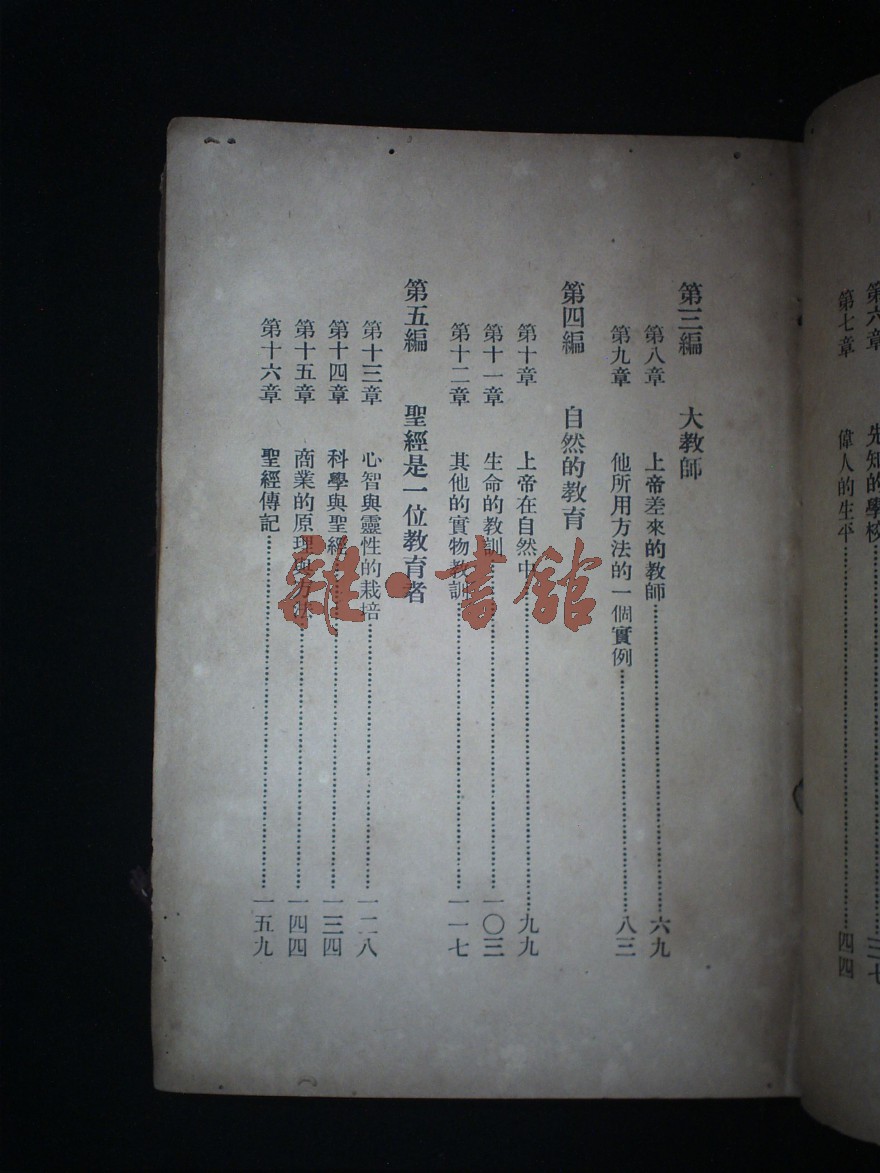 第六章 先知的學校 三七
第七章 偉人的生平 四四
第三編 大教師
第八章 上帝差來的教師 六九
第九章 他所用方法的一個實例 八三
第四編 自然的教育
第十章 上帝在自然中 九九
第十一章 生命的教訓 一〇三
第十二章 其他的實物教訓 一一七
第五編 聖經是一位教育者
第十三章 心智與靈性的栽培 一二八
第十四章 科學與聖經 一三四
第十五章 商業的原理與方法 一四四
第十六章 聖經傳記 一五九
雜·書館